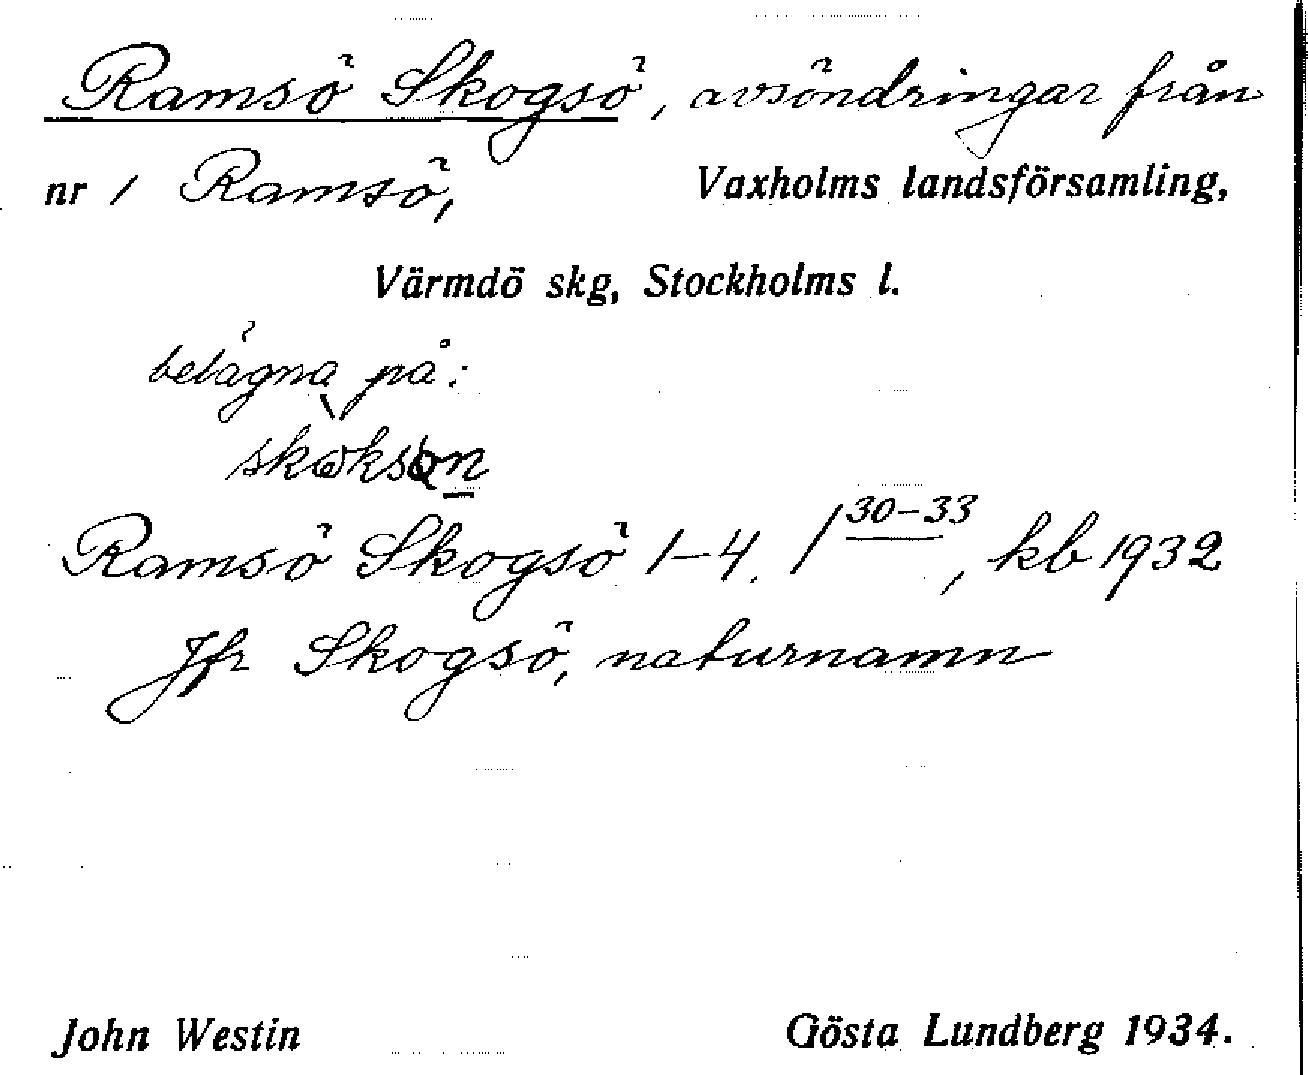 Ramsö Skogsö, avsöndringar från
nr 1 Ramsö, Vaxholms landsförsamling,
Värmdö skg, Stockholms l.
belägna på:
Ramsö Skogsö 1-4. 1 30-33, kb 1932
Jfr Skogsö, naturnamn
John Westin Gösta Lundberg 1934.